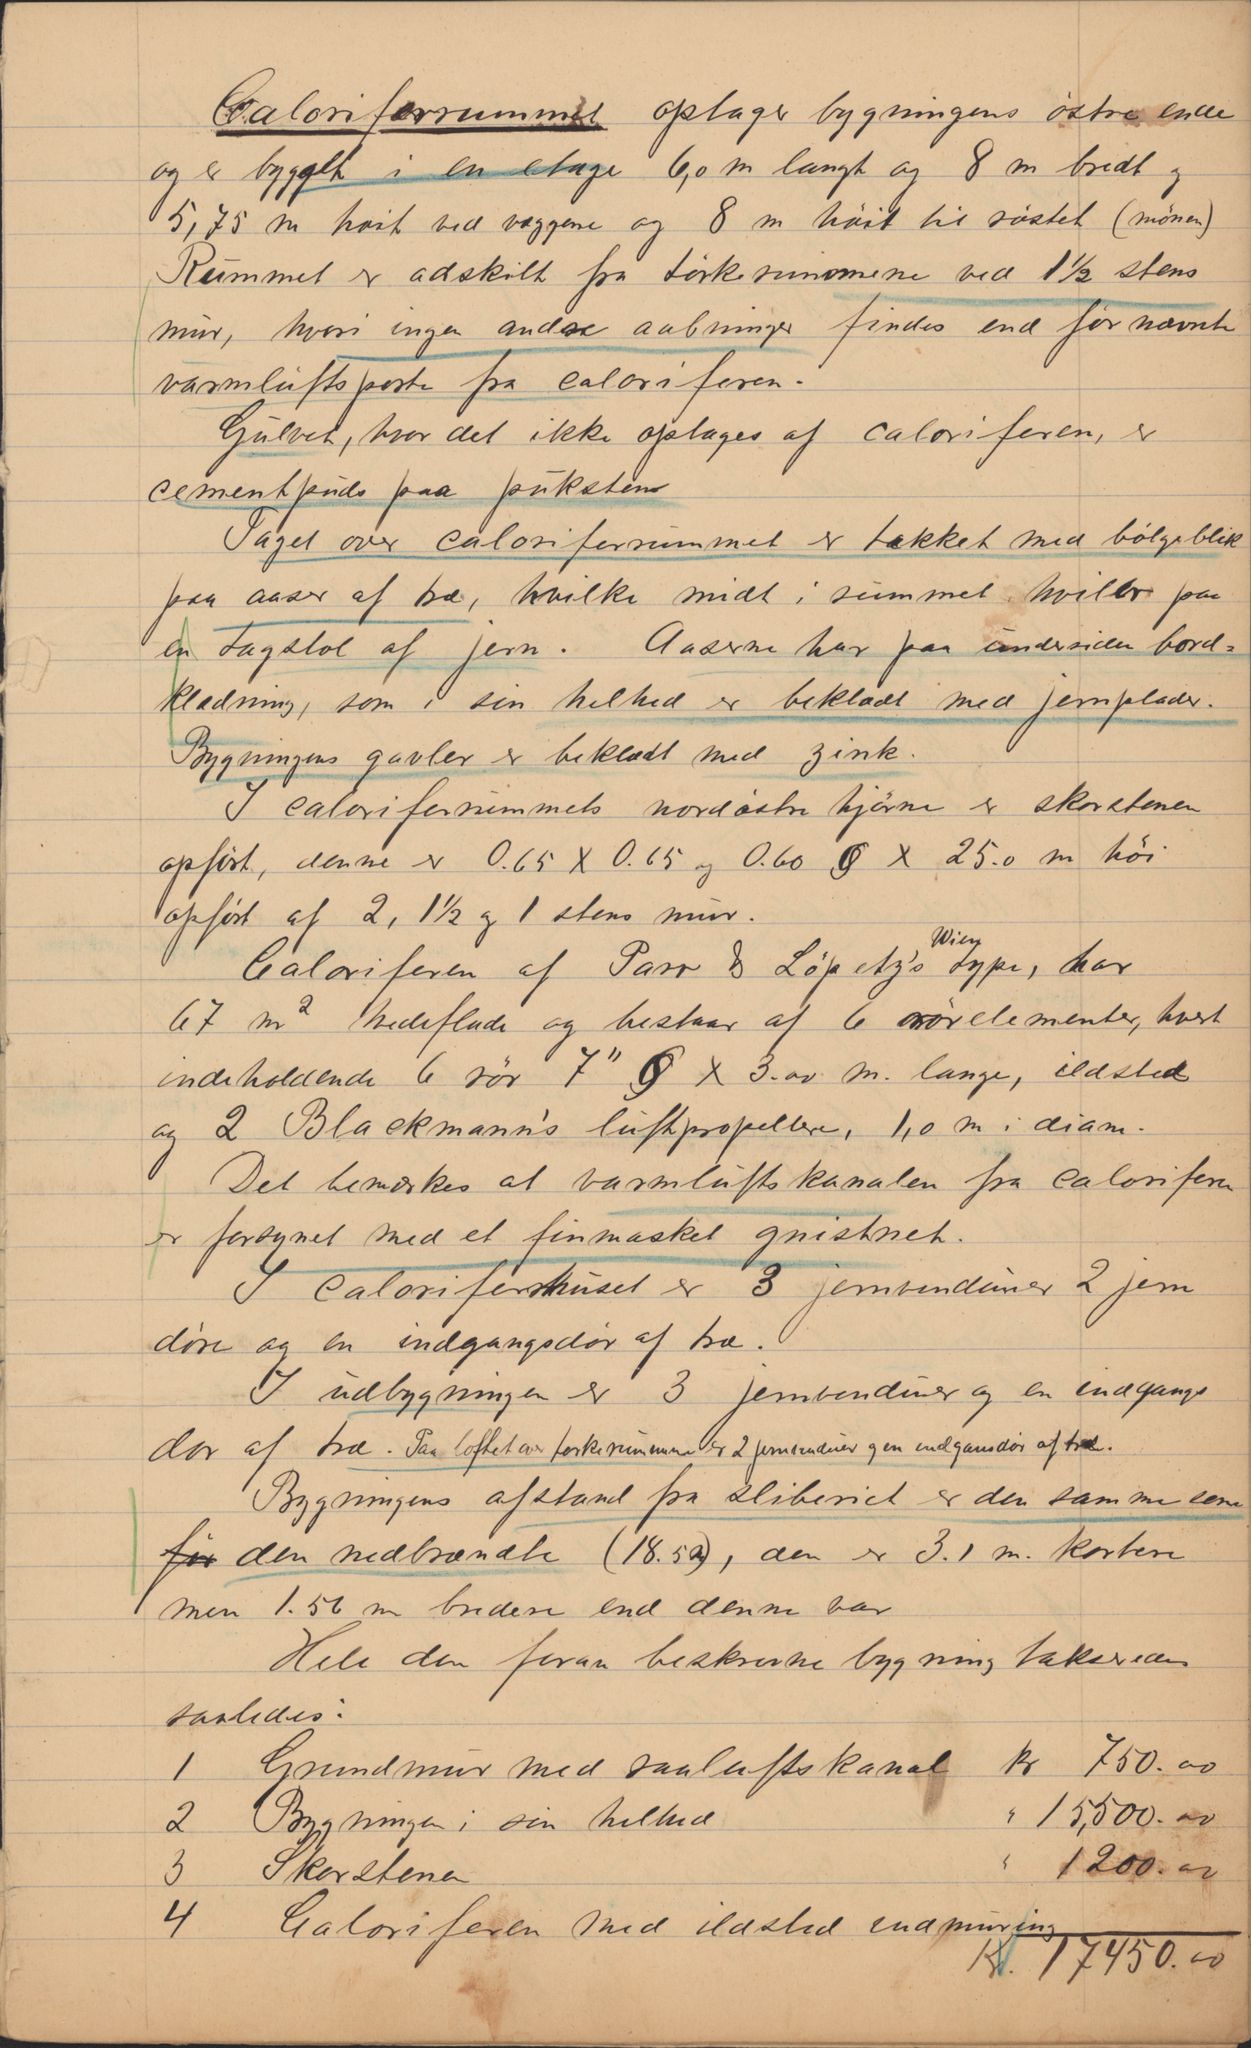 Caloriferrummet optager bygningens östre ende
og er bygget i en etage 6,0 m langt og 8 m bredt og
5,75 m höit ved væggene og 8 m höit til röstet (mönen)
Rummet er adskilt fra törkerummene ved 1½ stens
mur, hvori ingen andre aabninger findes end för nævnte
varmluftsporte fra caloriferen.
Gulvet, hvor det ikke optages af caloriferen, er
cementpuds paa pukstens
Taget over caloriferrummet er tækket med bölgeblik
paa aaser af træ, hvilke midt i rummet hviler paa
en tagstol af jern. Aaserne har paa undersiden bord=
klædning, som i sin helhed er beklædt med jernplader.
Bygningens gavler er beklædt med zink.
I caloriferrummets nordöstre hjörne er skorstenen
opfört, denne er 0.65 X 0.65 og 0.60 φ X 25.0 m höi
opfört af 2, 1½ og 1 stens mur.
Caloriferen af Wien type, har
67 m² hedeflade og bestaar af 6 rörelementer, hvert
indeholdende 6 rör 7" φ X 3.00 m. lange, ildsted
og 2 Blackmann's luftpropellere, 1,0 m i diam.
Det bemærkes at varmluftskanalen fra caloriferen
er forsynet med et finmasket gnistnet.
I caloriferhuset er 3 jernvinduer 2 jern
döre og en indgangsdör af træ.
I udbygningen er 3 jernvinduer og en indgangs
dör af træ. Paa loftet over törkerummene er 2 jernvinduer og en indgansdör af træ.
Bygningens afstand fra sliberiet er den samme som
för den nedbrændte (18.52), den er 3.1 m. kortere
men 1.56 m bredere end denne var
Hele den foran beskrevne bygning takseredes
saaledes:
1 Grundmur med raaluftskanal kr 750.00
2 Bygningen i sin helhed " 15,500.00
3 Skorstenen " 1200.00
4 Caloriferen med ildsted indmuring
Kr. 17450.00